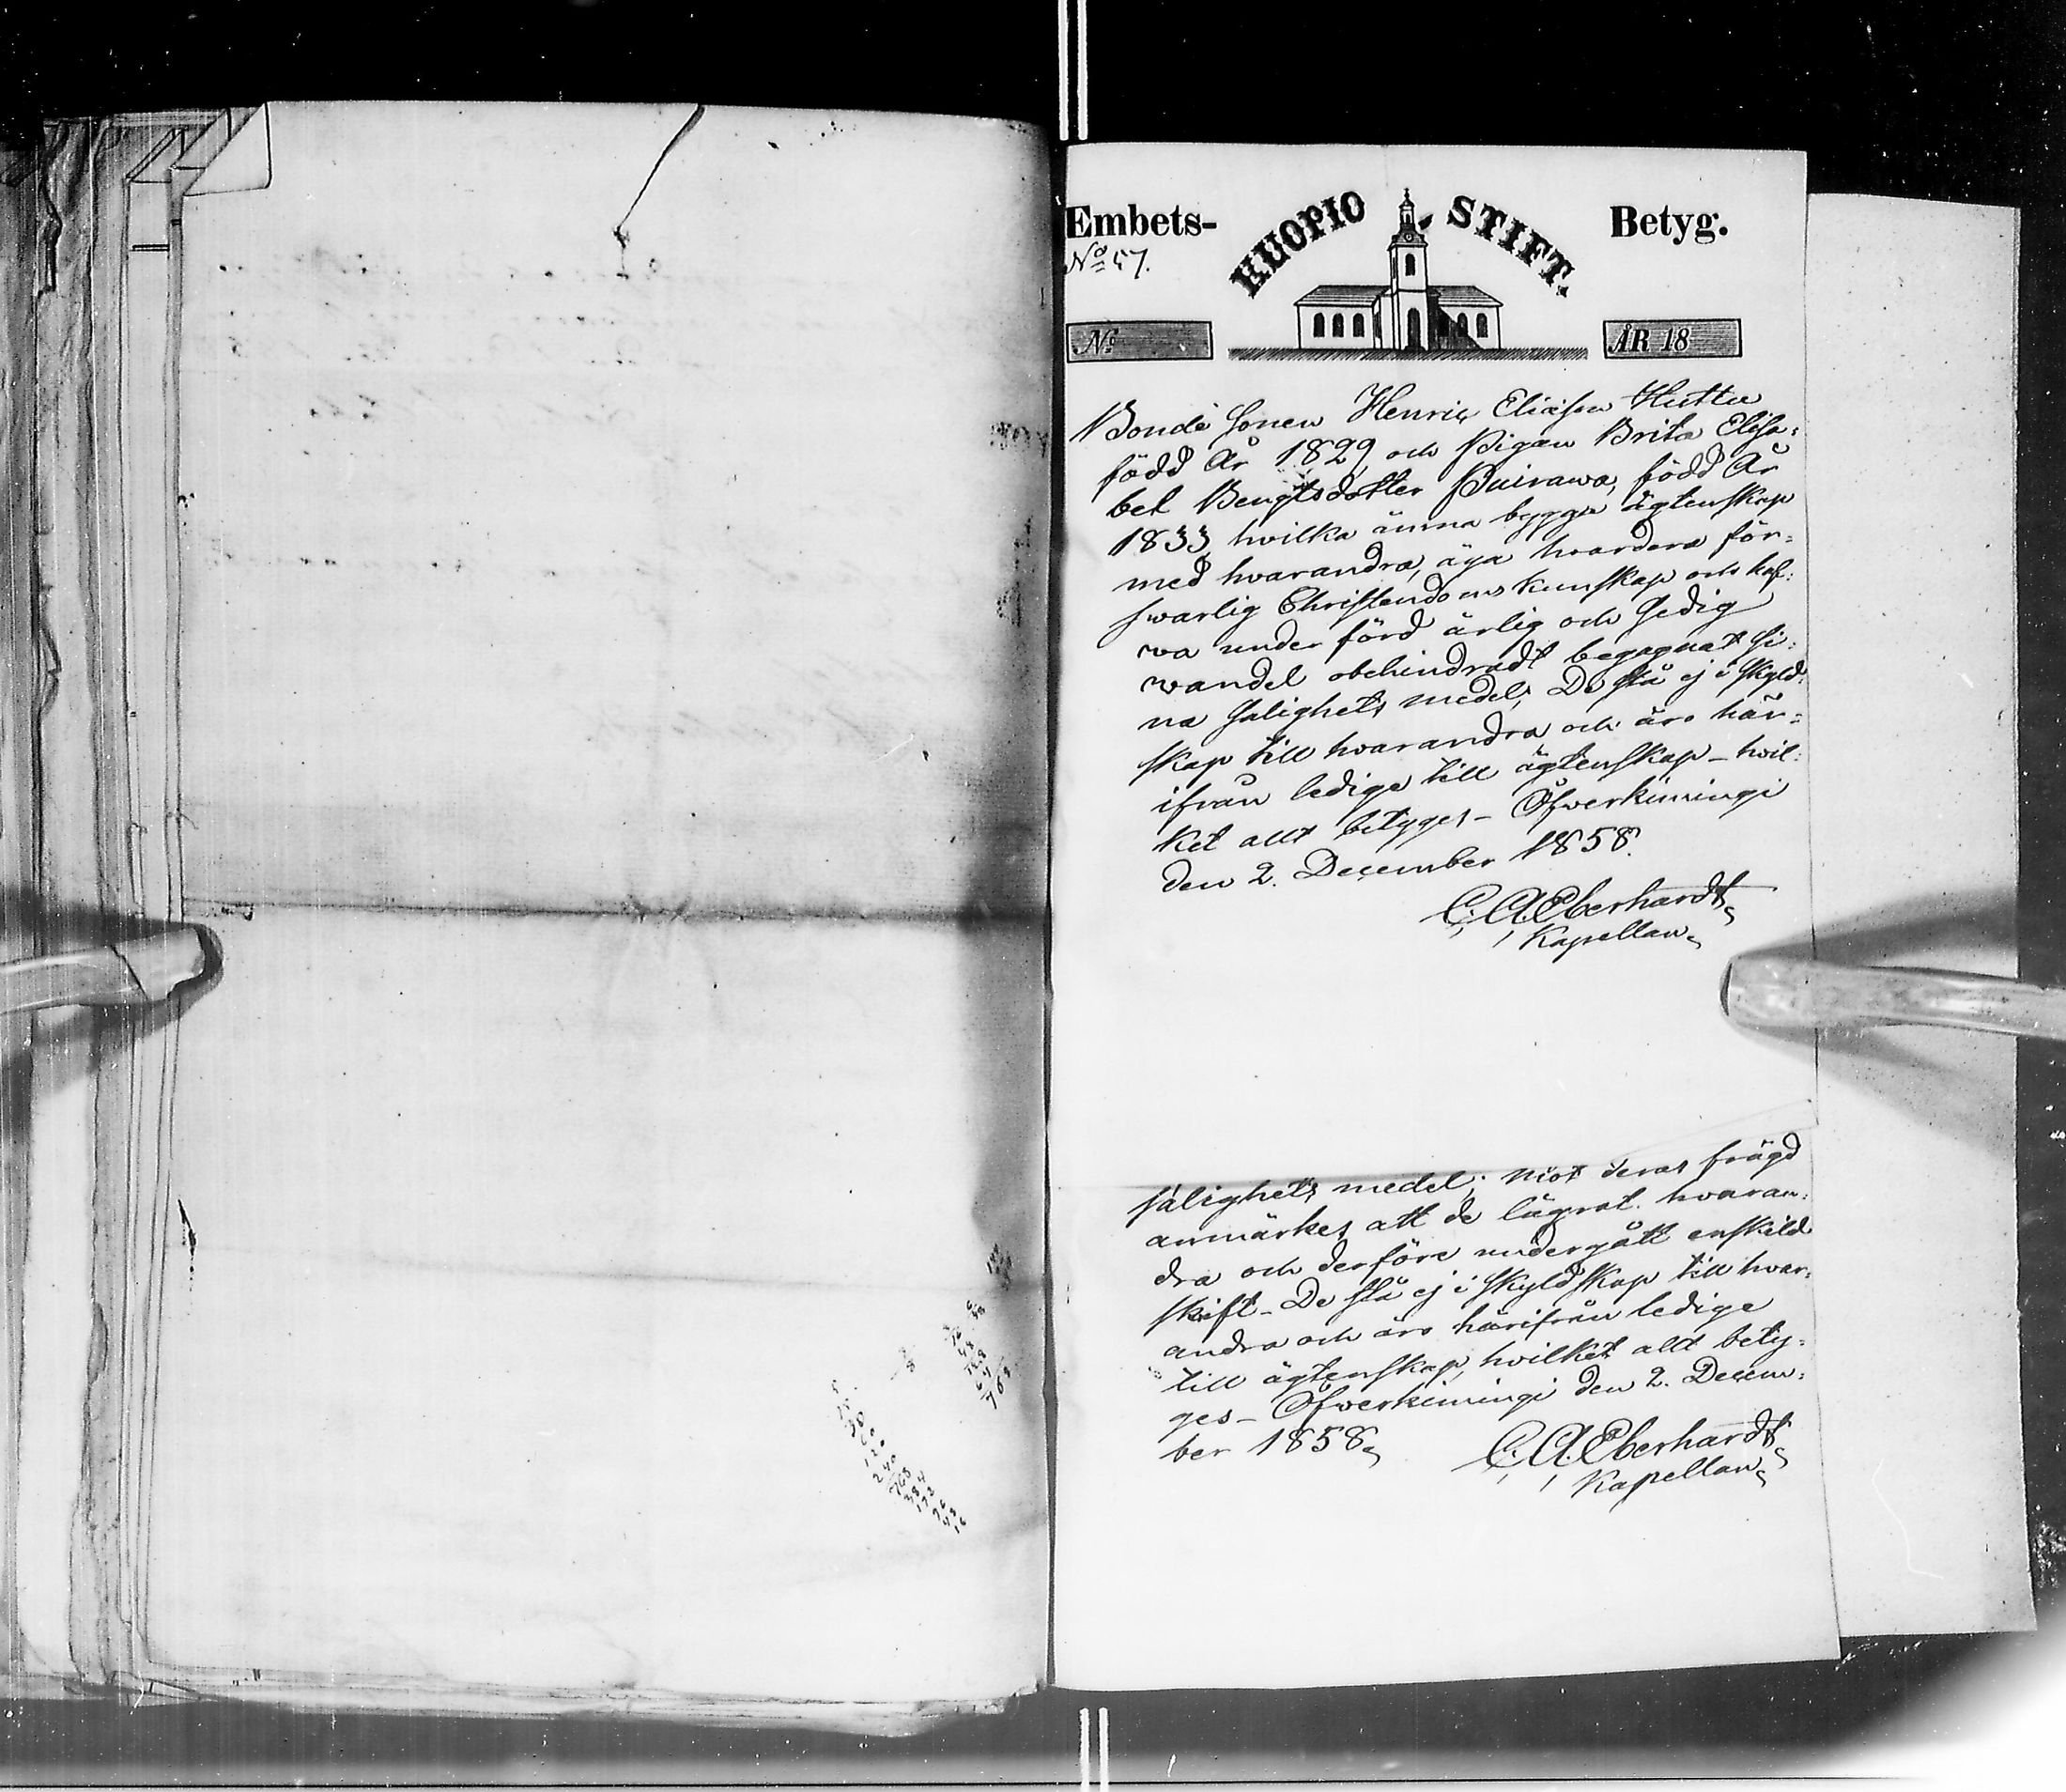 Embets- KUOPIO STIFT. Betyg.
No 57.
No ÅR 18
Bonde Sonen Henric Eliæson Huttu
född År 1829 och Pigan Brita Elisa:
bet Bengtsdotter Puirawa, född År
1833, hvilka ämna bygga ägtenskap
med hvarandra, äga hvardera för:
svarlig Christendoms kunskap och haf:
va under förd ärlig och Sedig
vandel obehindradt begagnat Si:
na Salighets medel, De stå ej i Skyld:
skap till hvarandra och äro här:
ifrån ledige till ägtenskap – hvil:
ket allt betyges – Öfverkimingi
den 2. December 1858.
C. A. Eberhardt,
Kapellan,
salighets medel; mot deras frägd
anmärkes att de lägrat hvaran:
dra och derföre undergått enskild
skift – De stå ej i Skyldskap till hvar:
andra och äro härifrån ledige
till ägtenskap, hvilket allt bety:
ges – Öfverkimingi den 2. Decem:
ber 1858,
C. A. Eberhardt,
Kapellan,